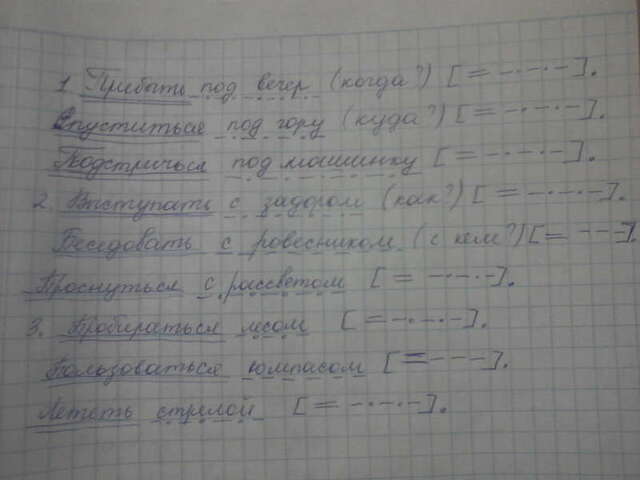 1. Прибыть под вечер (когда?) [= –·–·–].
Спуститься под гору (куда?) [= –·–·–].
Подстричься под машинку [= –·–·–].
2. Выступать с задором (как?) [= –·–·–].
Беседовать с ровесником (с кем?) [= – – –].
Проснуться с рассветом [= –·–·–].
3. Пробираться лесом [= –·–·–].
Пользоваться компасом [= – – –].
Лететь стрелой [= –·–·–].